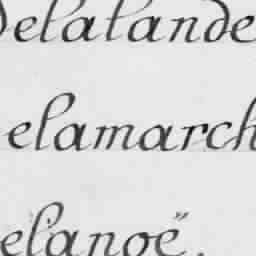 Delalande
elamarch
elanoë.